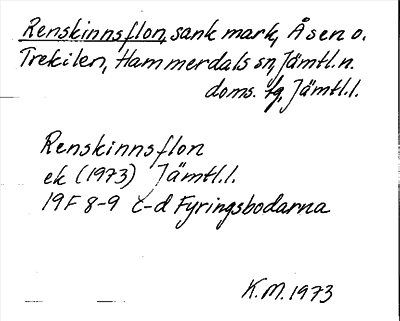 Renskinnsflon, sank mark, Åsen o.
Trekilen, Hammerdals sn, Jämtl.n.
doms. fg, Jämtl.l.
Renskinnsflon
ek (1973) Jämtl.l.
19F 8-9 c-d Fyringsbodarna
K.M. 1973